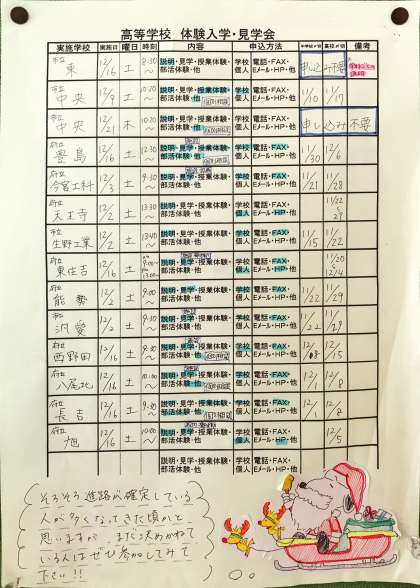 高等学校 体験入学・見学会
実施学校 実施日 曜日 時刻 内容 申込方法 中学校〆切 高校〆切 備考
市立 東 12/16 土 8:30〜 説明・見学・授業体験・部活体験・他 学校 個人 電話・FAX・Eメール・HP・他 申し込み不要
市立 中央 12/9 土 10:20〜 説明・見学・授業体験・部活体験・他 学校 個人 電話・FAX・Eメール・HP・他 11/10 11/17
市立 中央 12/21 木 10:20〜 説明・見学・授業体験・部活体験・他 学校 個人 電話・FAX・Eメール・HP・他 申し込み不要
府立 豊島 12/16 土 12:30〜 説明・見学・授業体験・部活体験・他 学校 個人 電話・FAX・Eメール・HP・他 11/30 12/6
府立 今宮工科 12/3 土 9:30〜 説明・見学・授業体験・部活体験・他 学校 個人 電話・FAX・Eメール・HP・他 11/21 11/28
府立 天王寺 12/2 土 13:30〜 説明・見学・授業体験・部活体験・他 学校 個人 電話・FAX・Eメール・HP・他 11/22〜29
市立 生野工業 12/2 土 13:40〜 説明・見学・授業体験・部活体験・他 学校 個人 電話・FAX・Eメール・HP・他 11/15 11/22
府立 東住吉 12/16 土 9:00〜 13:00〜 説明・見学・授業体験・部活体験・他 学校 個人 電話・FAX・Eメール・HP・他 11/20 12/4
府立 能勢 12/2 土 9:00〜 説明・見学・授業体験・部活体験・他 学校 個人 電話・FAX・Eメール・HP・他 11/22 11/29
市立 汎愛 12/2 土 9:30〜 説明・見学・授業体験・部活体験・他 学校 個人 電話・FAX・Eメール・HP・他 11/22 11/29
府立 西野田 12/16 土 9:30〜 説明・見学・授業体験・部活体験・他 学校 個人 電話・FAX・Eメール・HP・他 12/8 12/15
府立 八尾北 12/16 土 10:00〜 説明・見学・授業体験・部活体験・他 学校 個人 電話・FAX・Eメール・HP・他 12/1 12/8
府立 長吉 12/16 土 9:30〜 説明・見学・授業体験・部活体験・他 学校 個人 電話・FAX・Eメール・HP・他 12/1 12/8
府立 旭 12/16 土 10:00〜 説明・見学・授業体験・部活体験・他 学校 個人 電話・FAX・Eメール・HP・他 12/5
そろそろ進路が確定している
人が多くなってきた頃かと
思いますが、まだ決めかねて
いる人はぜひ参加してみて
下さい!!